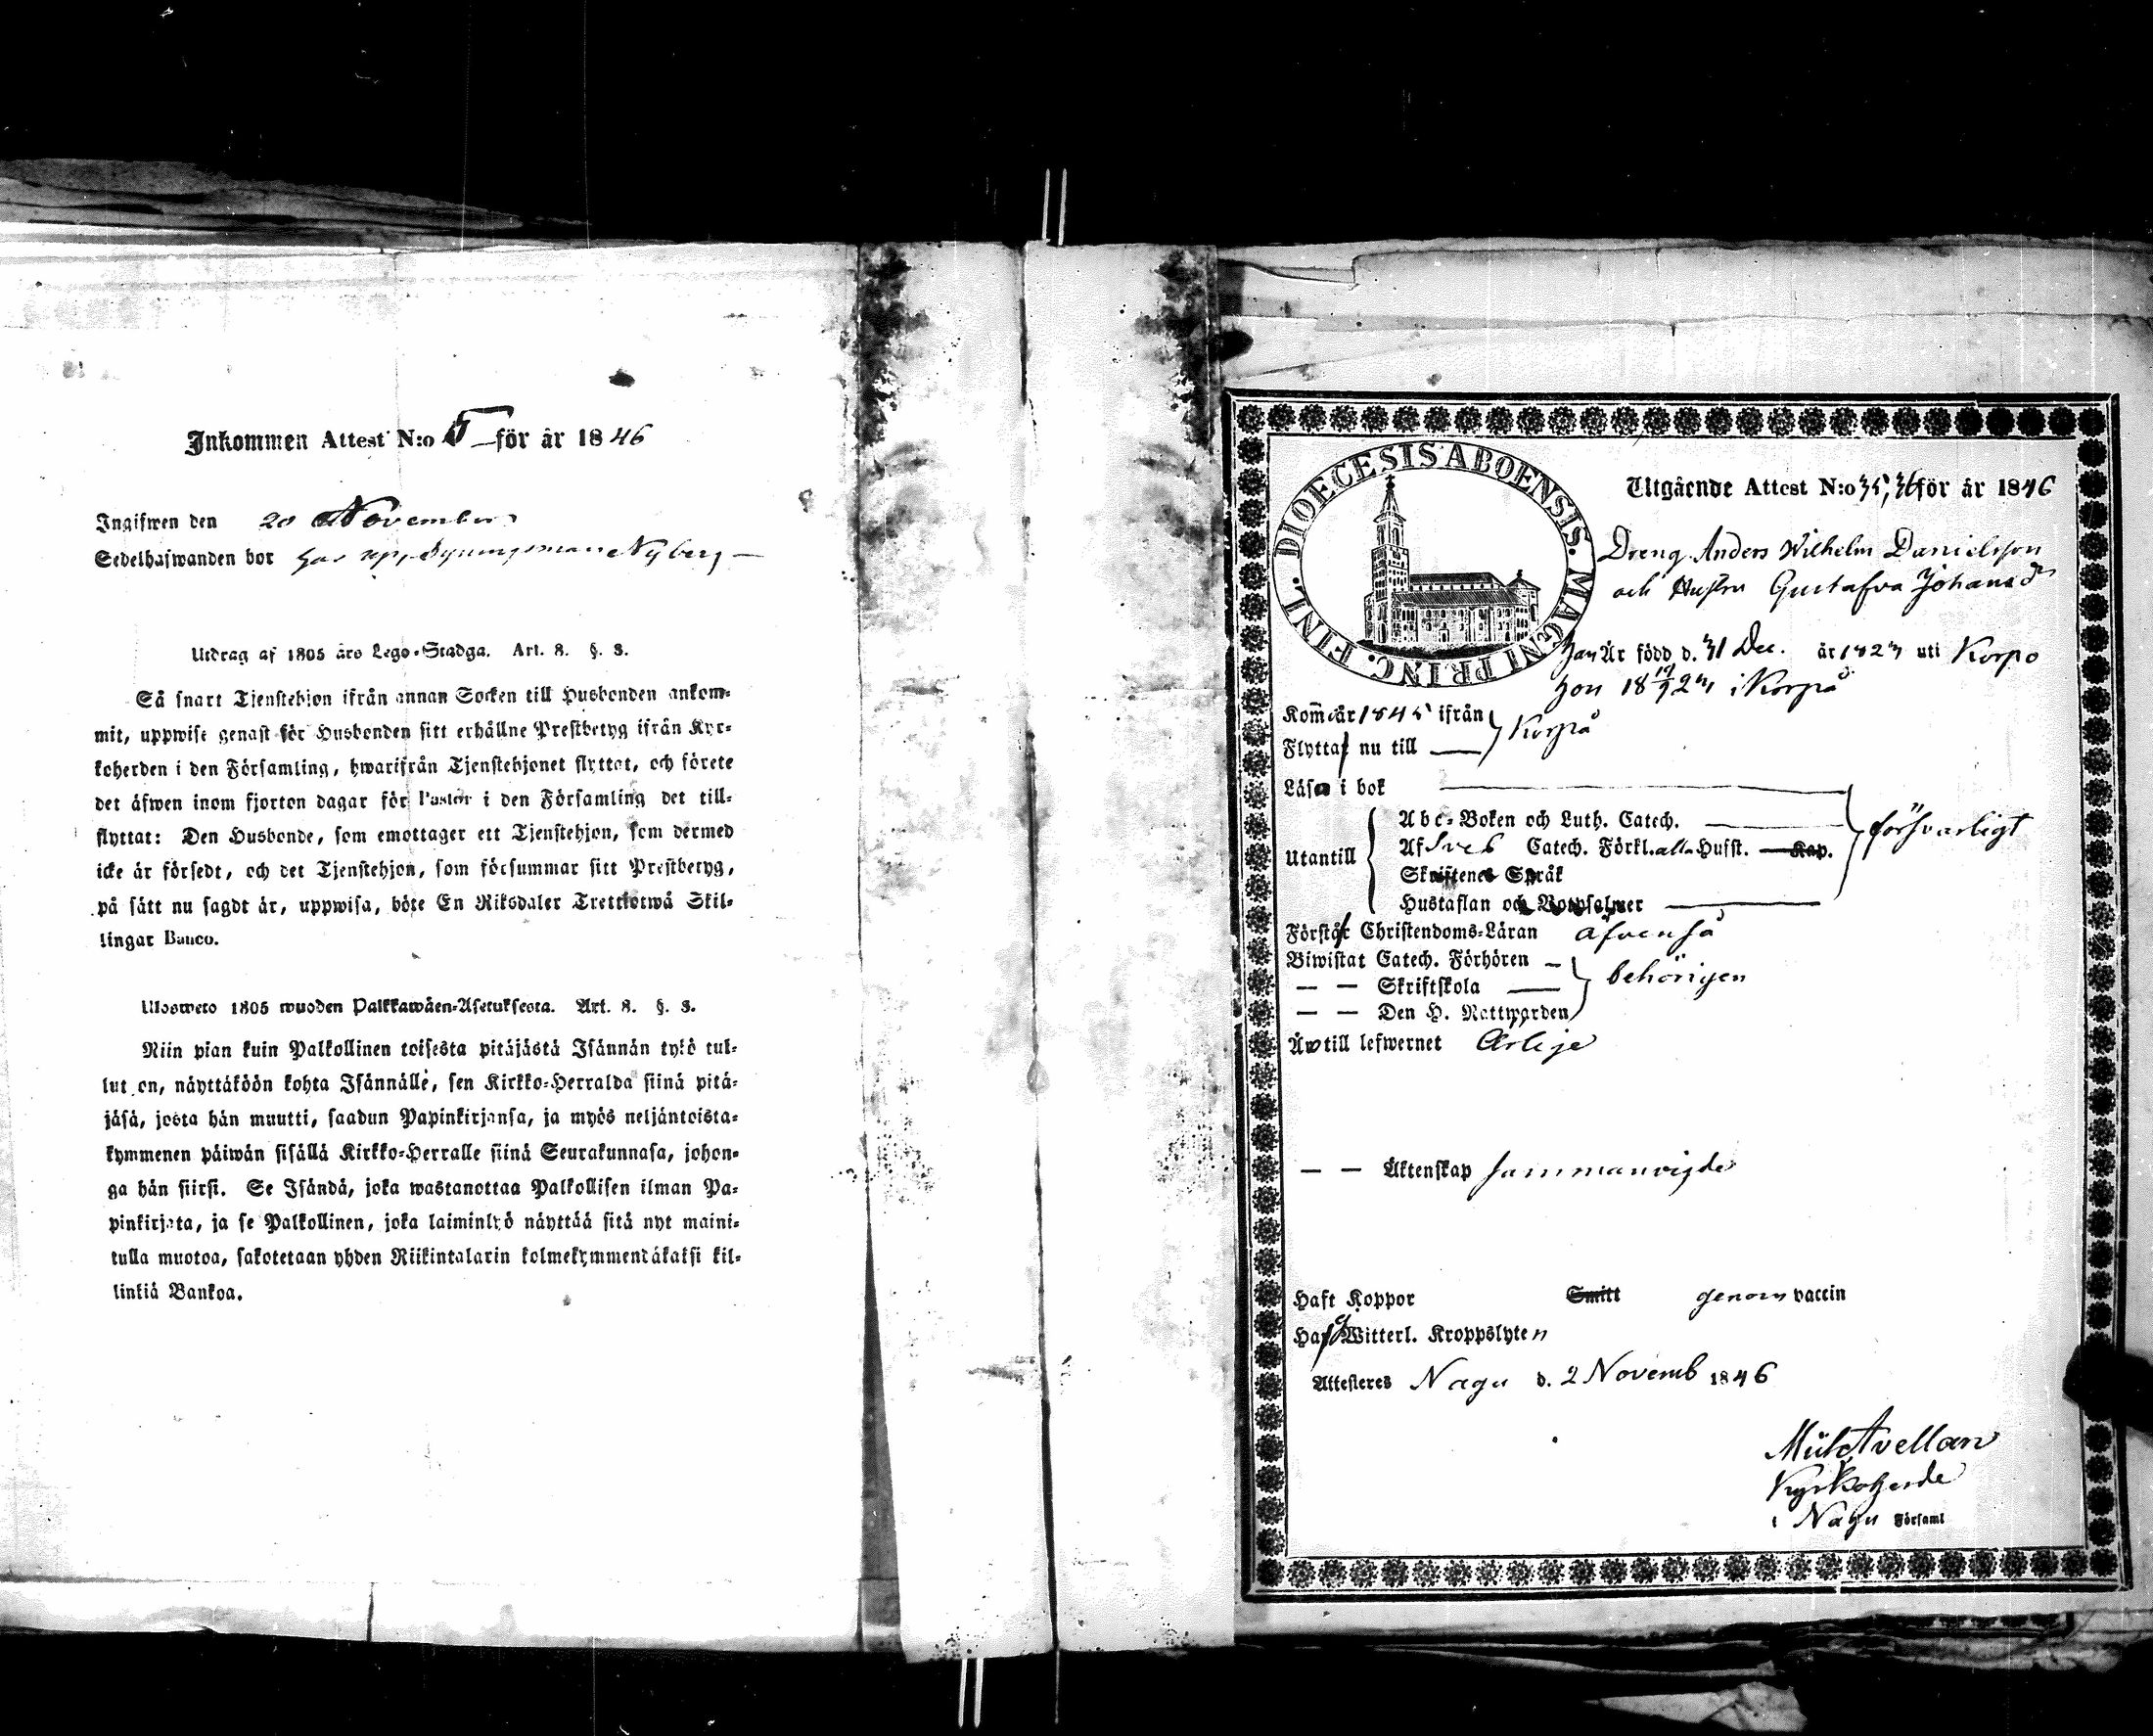 Inkommen Attest N:o 5 för år 1846
Ingifwen den 20 November
Sedelhafwanden bor hos Nyberg
Utdrag af 1805 års Lego-Stadga. Art. 8. §. 3.
Så snart Tjenstehjon ifrån annan Socken till Husbonden ankom-
mit, uppwise genast för Husbonden sitt erhållne Prestbetyg ifrån Kyr-
koherden i den Församling, hwarifrån Tjenstehjonet flyttat, och förete
det äfwen inom fjorton dagar för Pastor i den Församling det till-
flyttat: Den Husbonde, som emottager ett Tjenstehjon, som dermed
icke är försedt, och det Tjenstehjon, som försummar sitt Prestbetyg,
på sätt nu sagdt är, uppwisa, böte En Riksdaler Trettiotwå Skil-
lingar Banco.
Ulosweto 1805 wuoden Palkkawäen-Asetuksesta. Art. 8. §. 3.
Niin pian kuin Palkollinen toisesta pitäjästä Isännän tykö tul-
lut on, näyttäköön kohta Isännälle, sen Kirkko-Herralda siinä pitä-
jäsä, josta hän muutti, saadun Papinkirjansa, ja myös neljäntoista-
kymmenen päiwän sisällä Kirkko-Herralle siinä Seurakunnasa, johon-
ga hän siirsi. Se Isändä, joka wastanottaa Palkollisen ilman Pa-
pinkirjata, ja se Palkollinen, joka laiminlyö näyttää sitä nyt maini-
tulla muotoa, sakotetaan yhden Riikintalarin kolmekymmendäkaksi kil-
linkiä Bankoa.
DIOECESIS ABOENSIS. MAGNI PRINC. FINL.
Utgående Attest N:o 35, 36 för år 1846
Dreng Anders Wilhelm Danielsson
och Hustru Gustafva Johansdr
han Är född d. 31 Dec. år 1823 uti Korpo
hon 18 23 i Korpå
Kom år 1845 ifrån
Flytta nu till Korpå
Läsa i bok
Abc-Boken och Luth. Catech.
försvarligt
Utantill
Af Sveb Catech. Förkl. alla Husst. Kap.
Skriftenes Språk
Hustaflan och Botpsalmer
Förstår Christendoms-Läran äfvenså
Biwistat Catech. Förhören
— — Skriftskola behörigen
— — Den H. Nattwarden
Äro till lefwernet Ärlige
— — Äktenskap sammanvigde
Haft Koppor Smitt genom vaccin
Haf Witterl. Kroppslyten
Attesteres Nagu d. 2 Novemb 1846
Mich Avellan
Kyrkoherde
i Nagu Församl